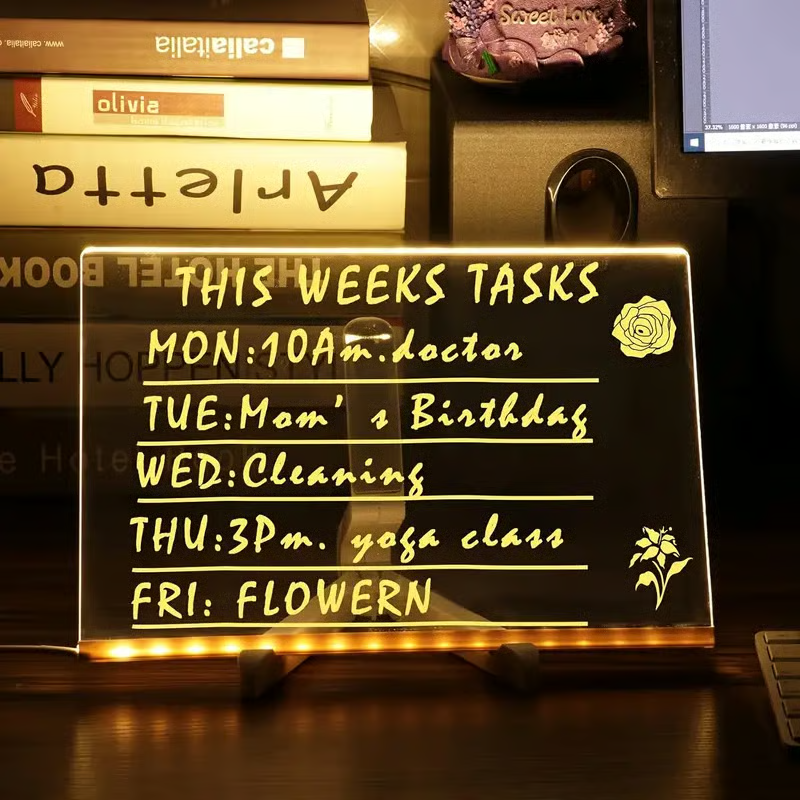 www.caliaitalia.com
caliaitalia
olivia
Arletta
THE HOTEL BOOK
Sweet Love
THIS WEEKS TASKS
MON:10Am.doctor
TUE:Mom's Birthdag
WED:Cleaning
THU:3Pm. yoga class
FRI: FLOWERN